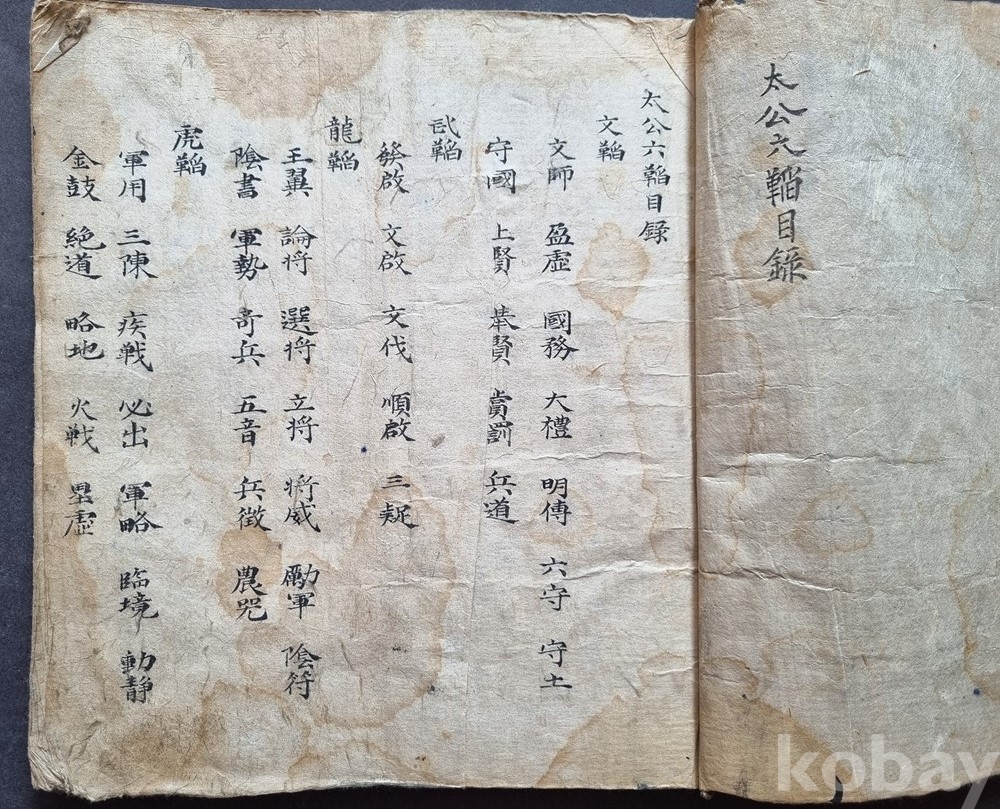 太公六韜目錄
太公六韜目錄
文韜
文師 盈虛 國務 大禮 明傳 六守 守土
守國 上賢 舉賢 賞罰 兵道
武韜
發啟 文啟 文伐 順啟 三疑
龍韜
王翼 論将 選将 立将 將威 勵軍 陰符
陰書 軍勢 奇兵 五音 兵徵 農器
虎韜
軍用 三陳 疾戦 必出 軍略 臨境 動静
金鼓 絶道 略地 火戦 壘虛
kobay